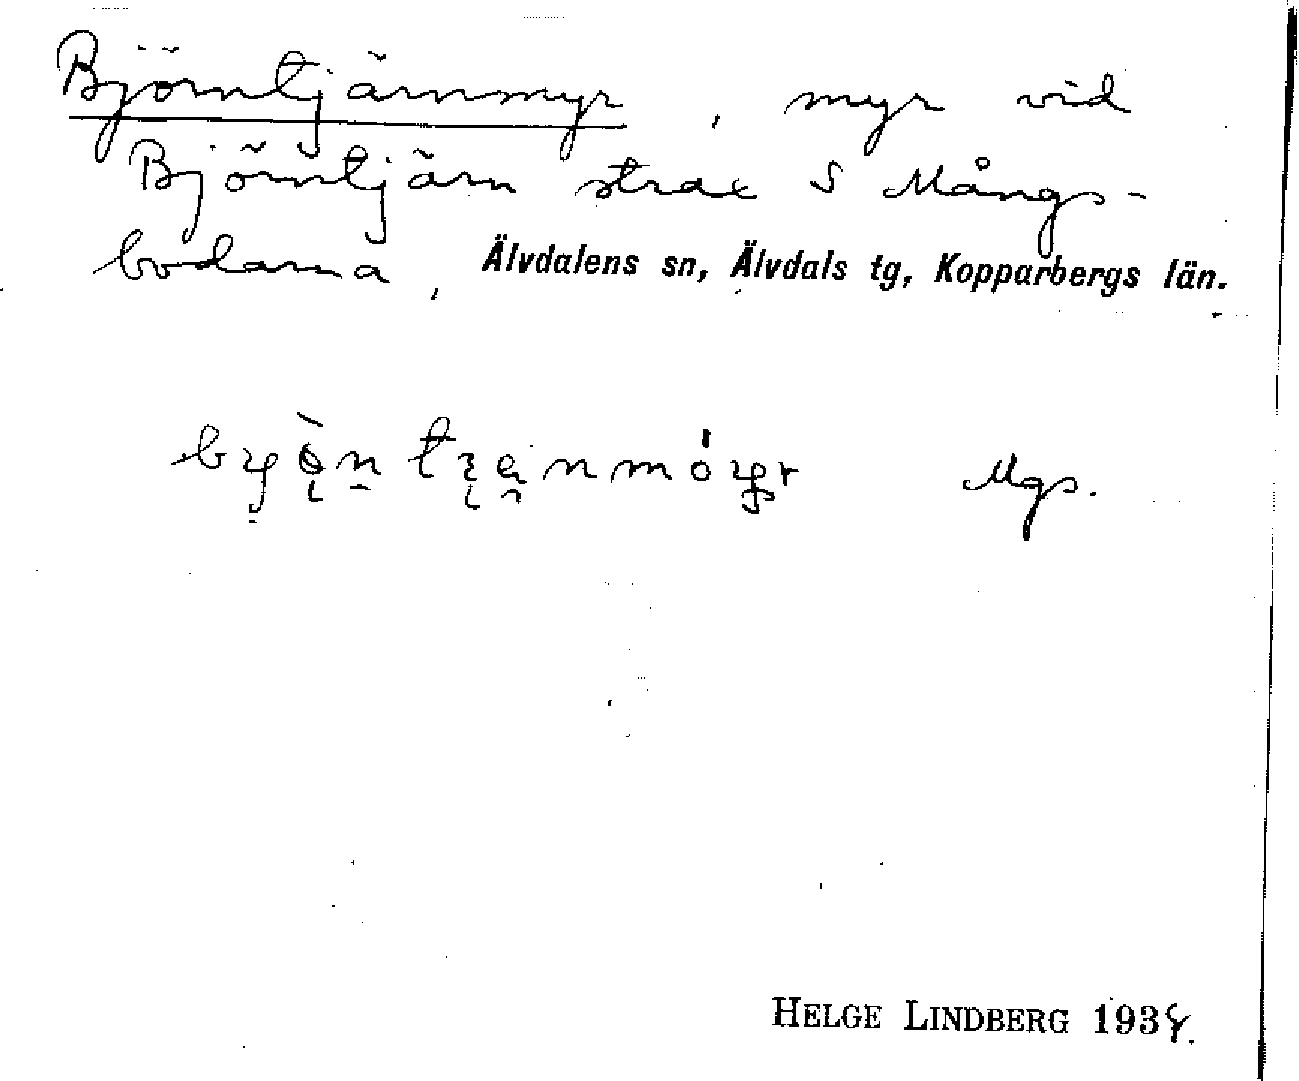 Björntjärnmyr, myr vid
Björntjärn strax S Mångs-
bodarna, Älvdalens sn, Älvdals tg, Kopparbergs län.
Mgs.
HELGE LINDBERG 193